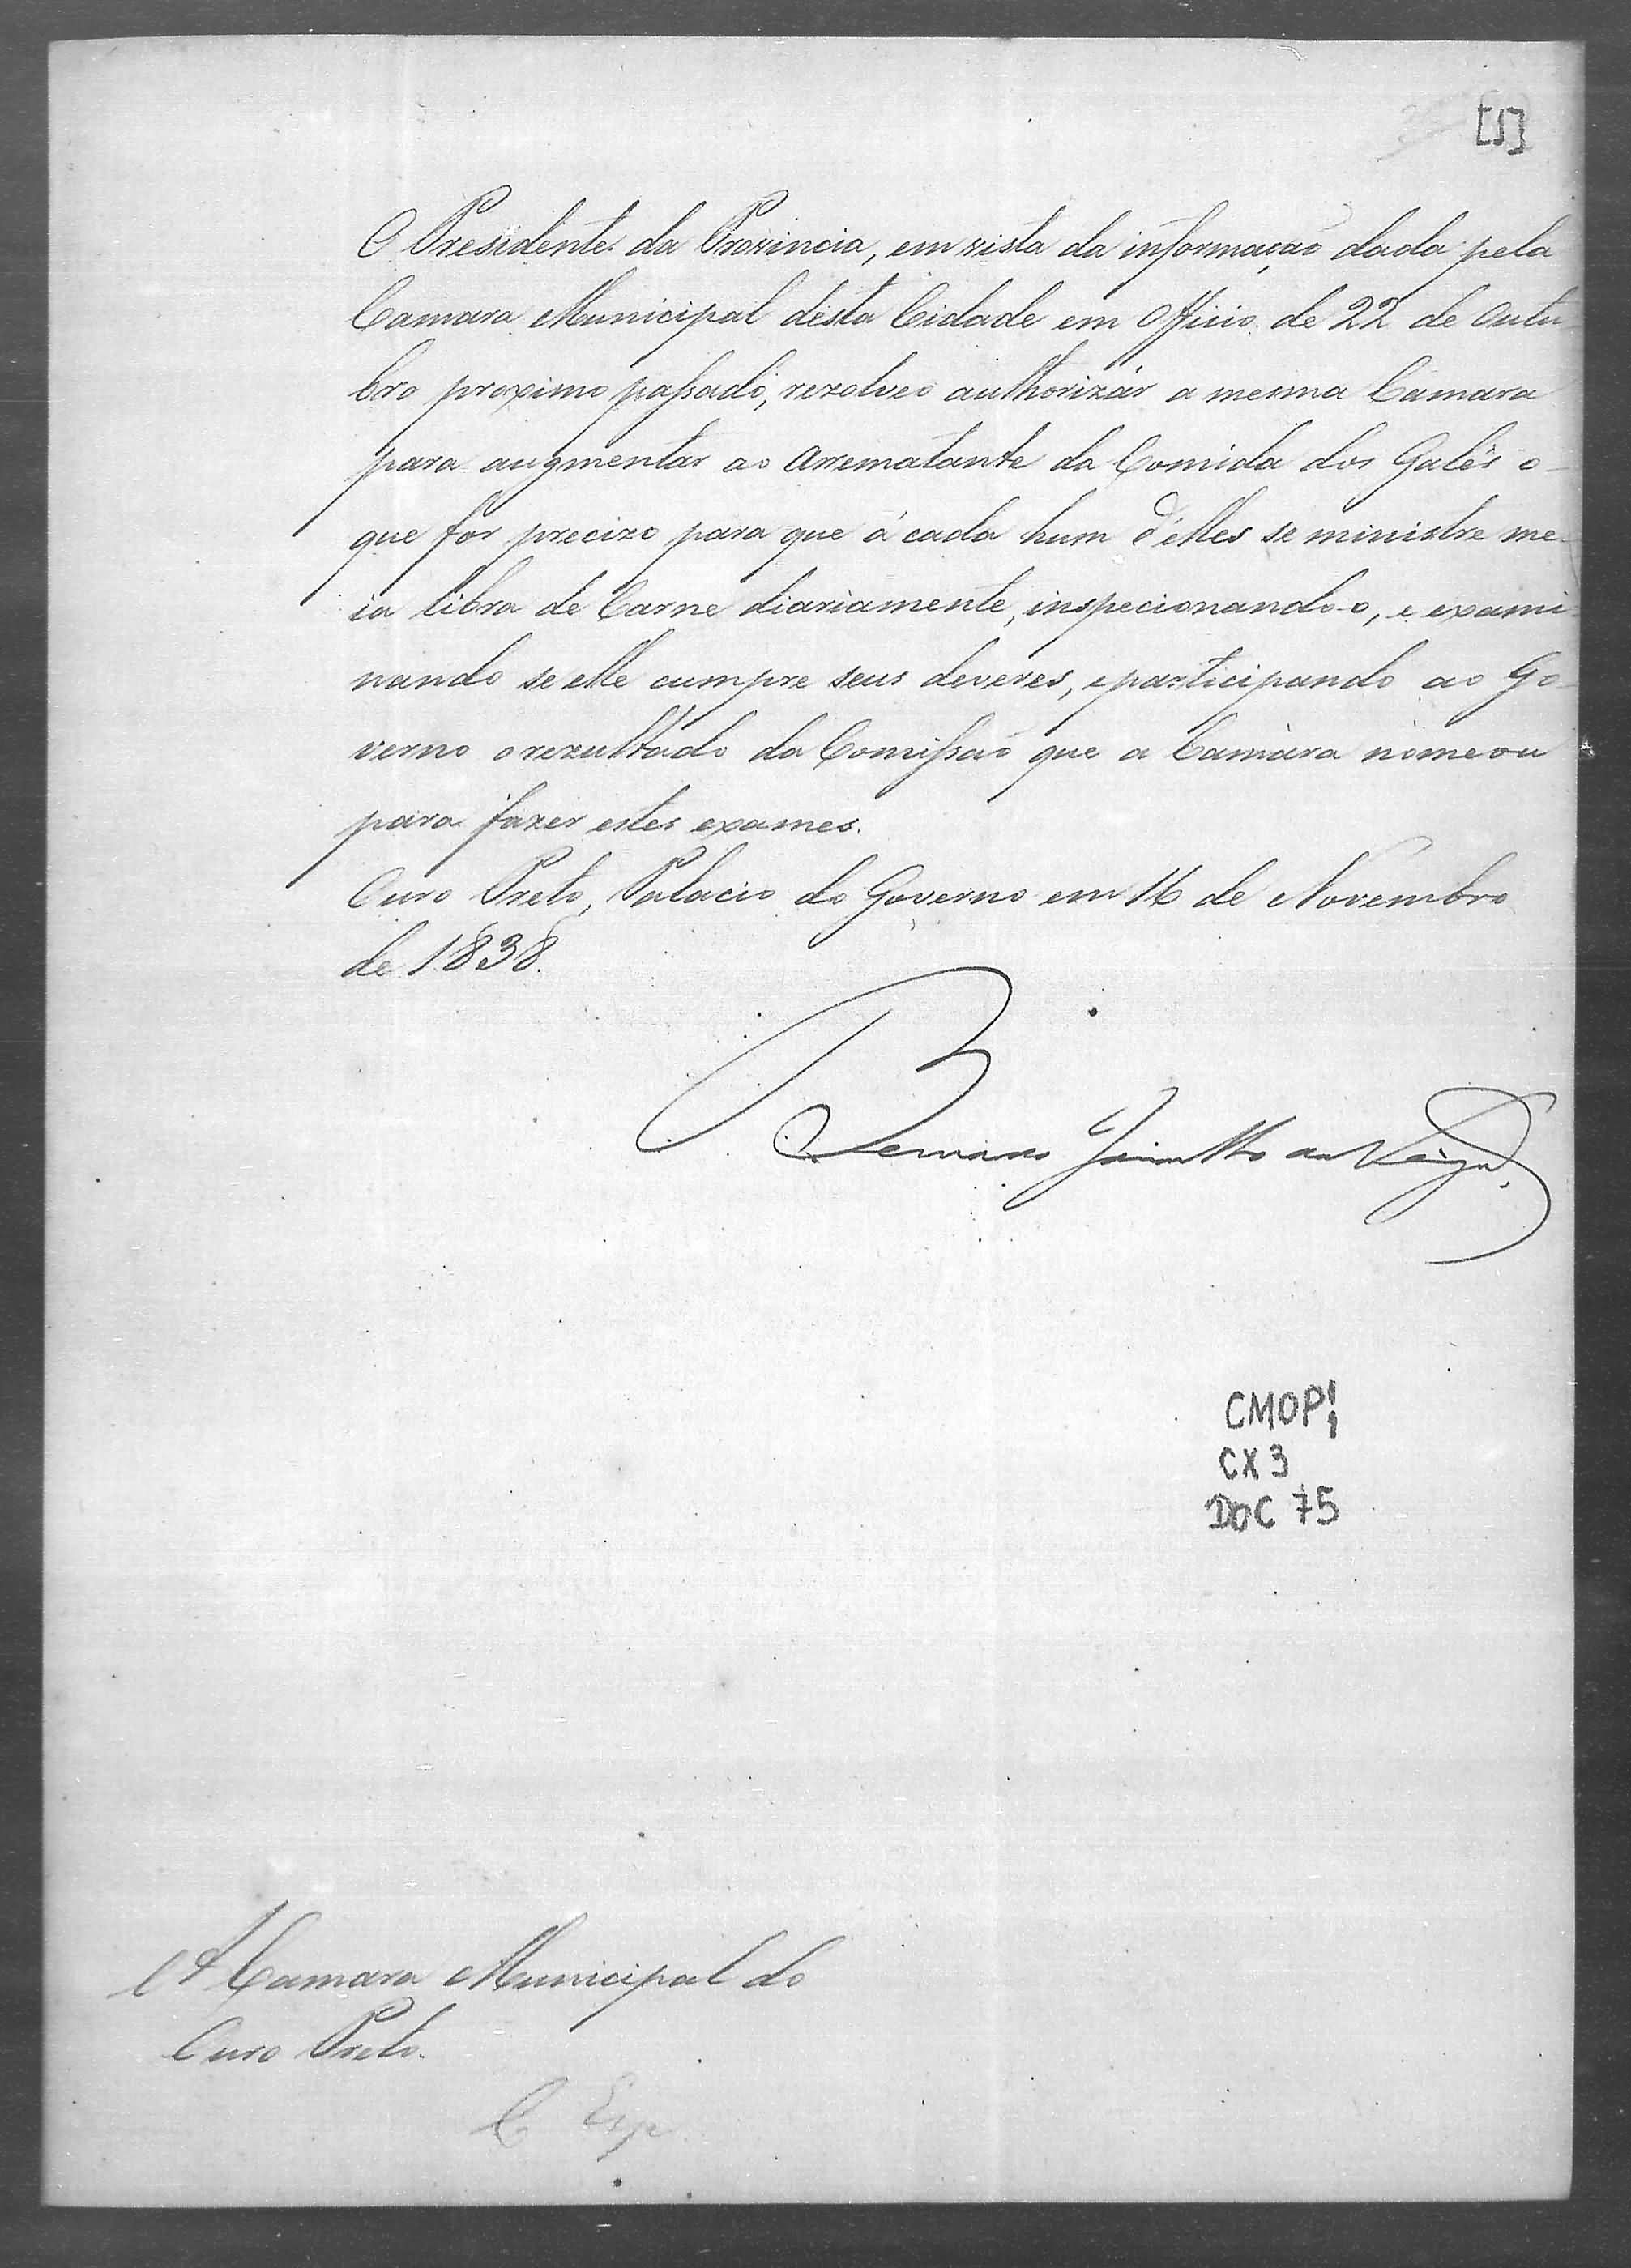 [5]
O Presidente da Provincia, em vista da informação dada pela
Camara Municipal désta Cidade em Officio de 22 de Outu-
bro proximo passado, rezolveo authorizár a mesma Camara
para augmentar ao Arrematante da Comida dos Galés o
que for precizo para que á cada hum d'elles se ministre me-
ia libra de Carne diariamente, inspecionando-o, e exami-
nando se elle cumpre seus deveres, e participando ao Go-
verno o rezultado da Comissaõ que a Camara nomeou
para fazer estes exames.
Ouro Preto, Palacio do Governo em 16 de Novembro
de 1838.
Bernardo Jacintho da Veiga
CMOP
CX 3
DOC 75
A Camara Municipal do
Ouro Preto.